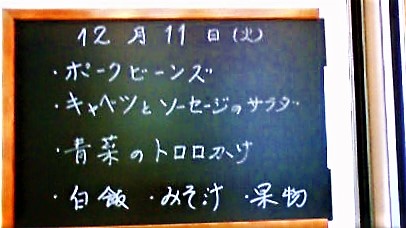 12月11日(火)
・ポークビーンズ
・キャベツとソーセージのサラダ
・青菜のトロロかけ
・白飯 ・みそ汁 ・果物